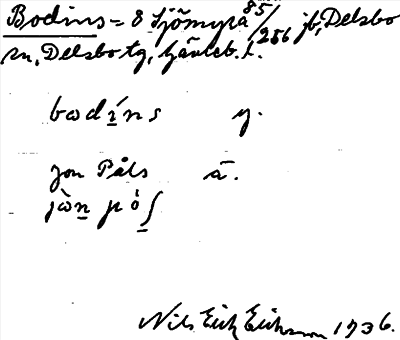 Bodins = 8 Sjömyra 85/256 jb, Delsbo
sn, Delsbo tg, Gävleb. l.
bωdíns y.
Jon Påls ä.
jòn pó∫
Nils Erik Eriksson 1936.